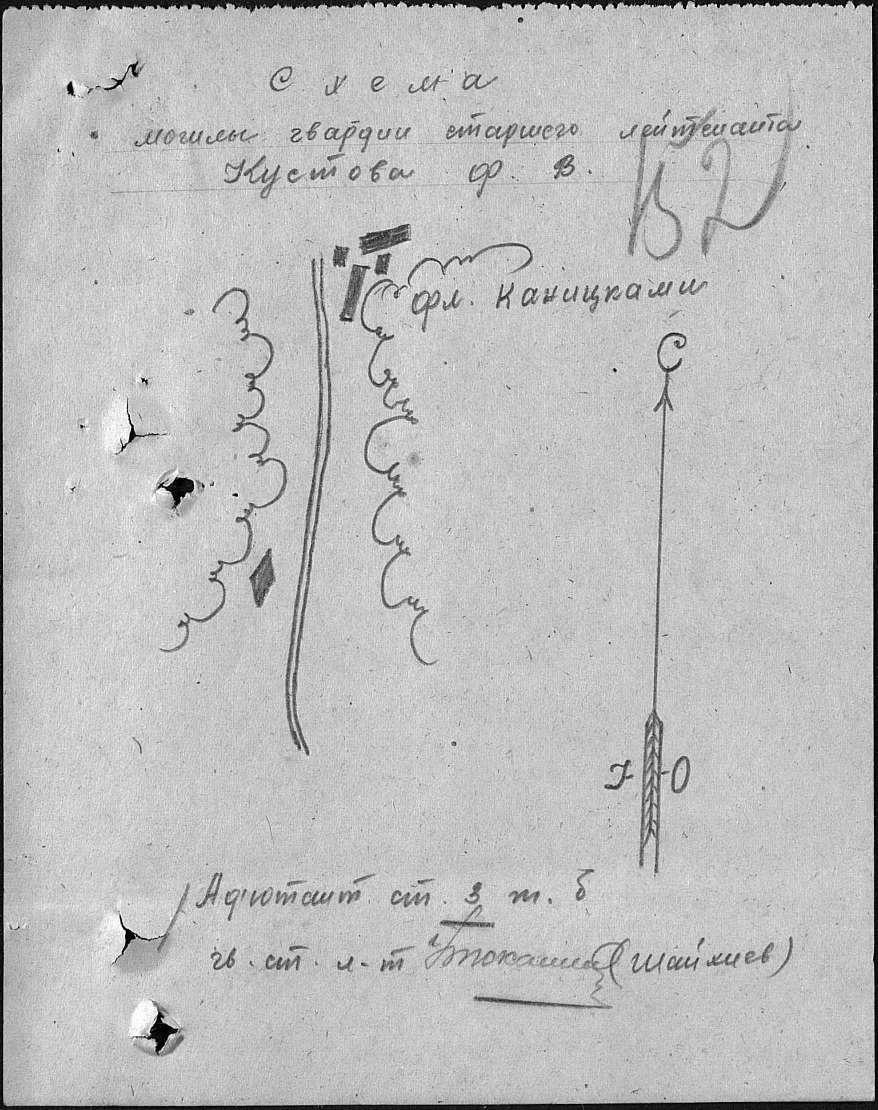 Схема
могилы гвардии старшего лейтенанта
Кустова Ф. В.
фл. Каницками
С
Ю
Адютант ст. 3 т. б
гв. ст. л-т (Шайхиев)